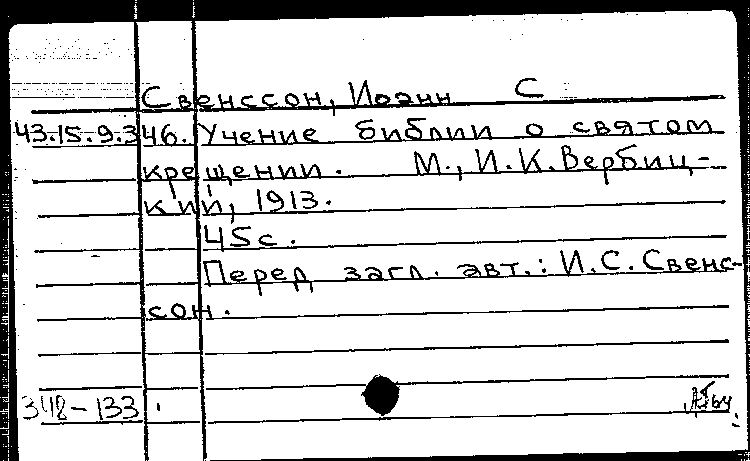 Свенссон, Иоанн С
43.15.9.346. Учение библии о святом
крещении. М., И.К.Вербиц-
кий, 1913.
45с.
Перед загл. авт.: И.С.Свенс-
сон.
348-133